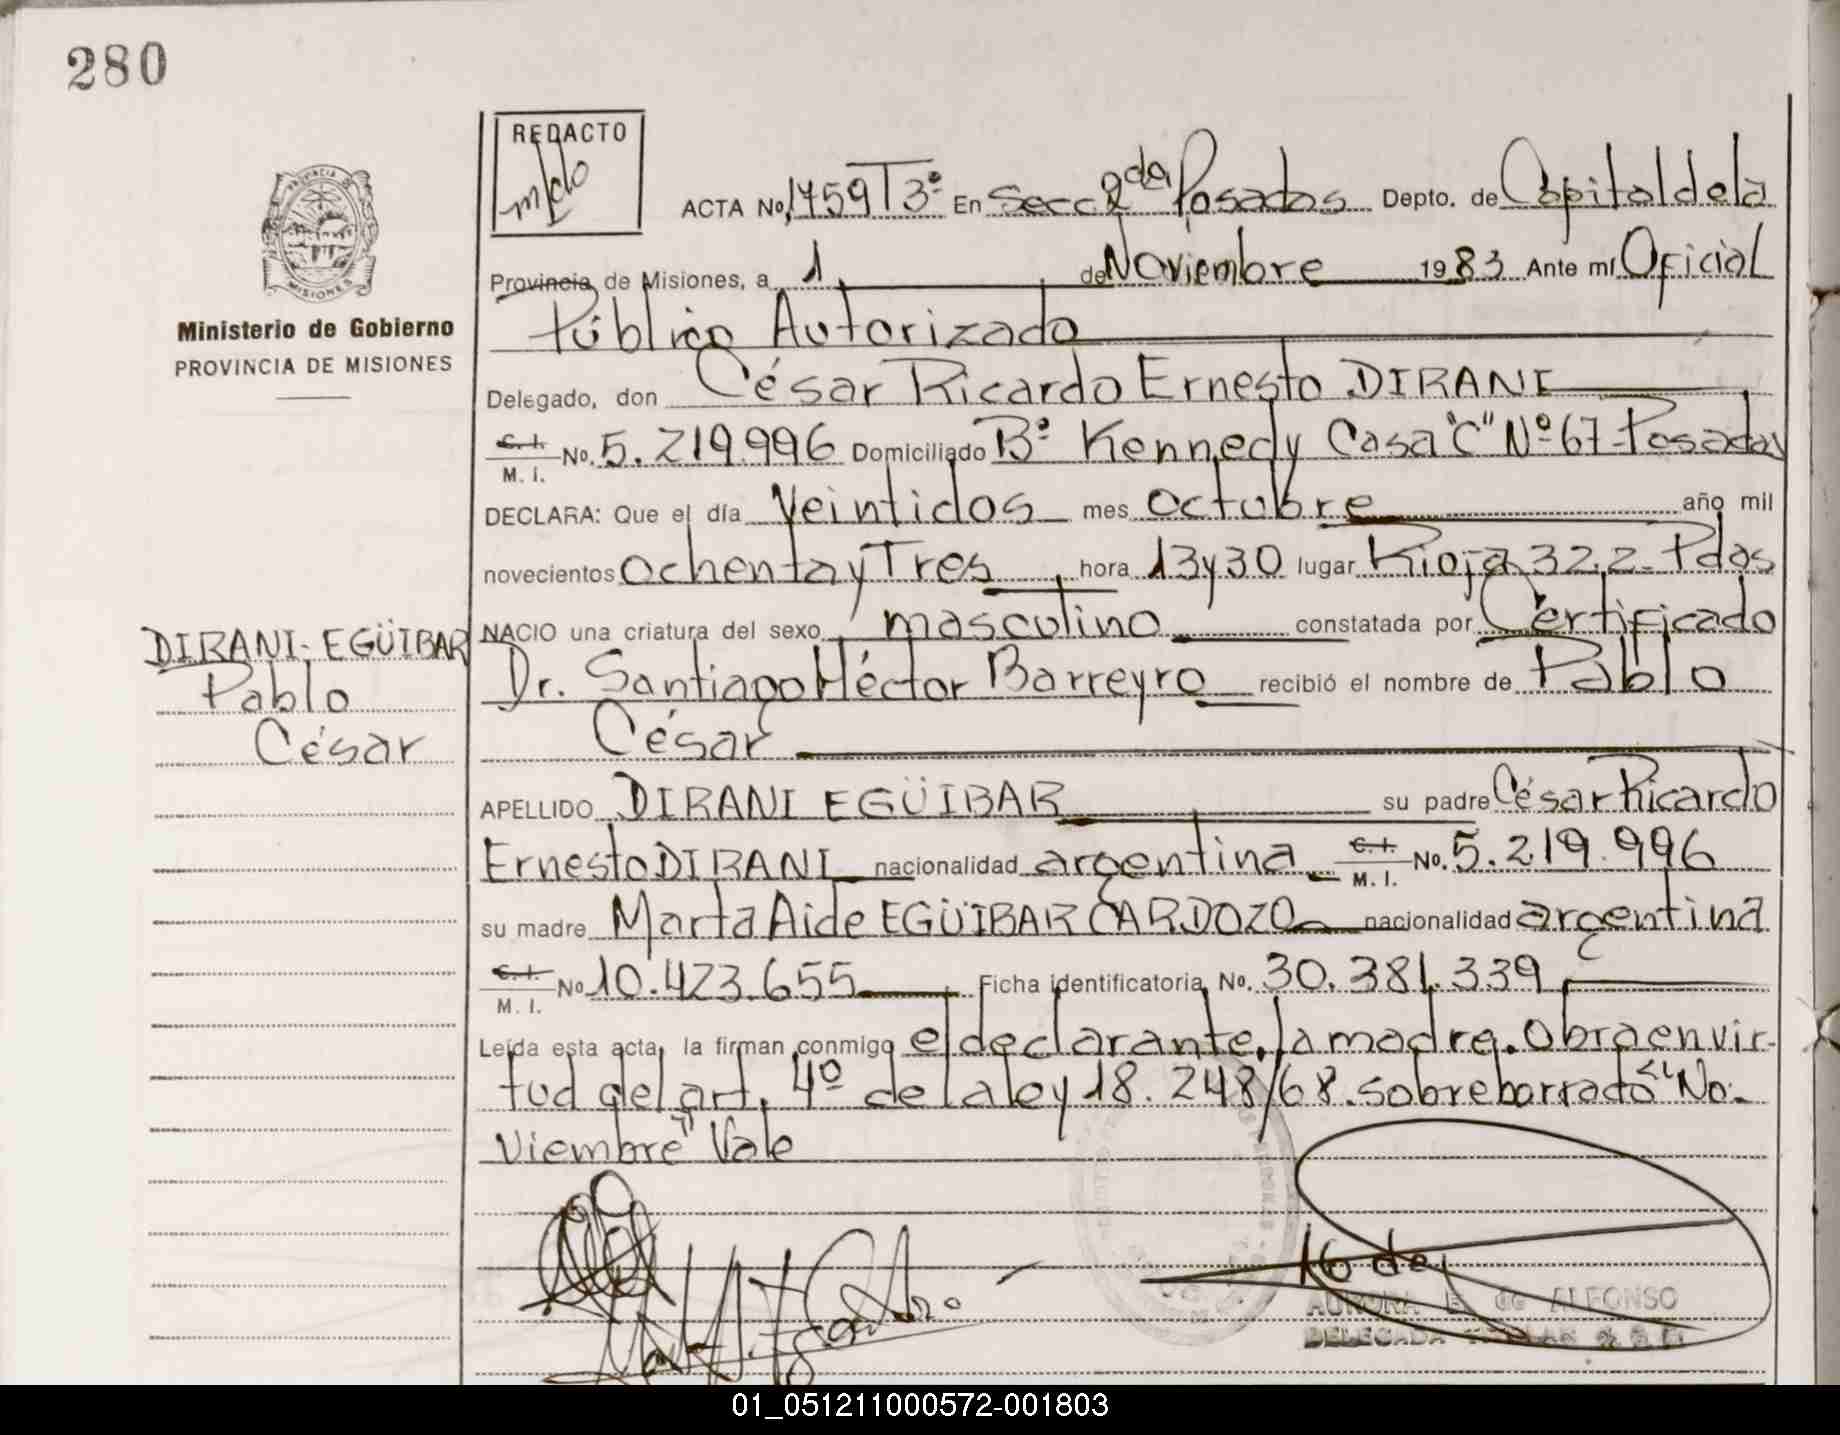 280
REDACTO
ACTA No. 1759 T3º En Secc 2da Posadas Depto. de Capital de la
Provincia de Misiones, a 1 de Noviembre 1983 Ante mí Oficial
Público Autorizado
PROVINCIA
MISIONES
Ministerio de Gobierno
PROVINCIA DE MISIONES
Delegado, don César Ricardo Ernesto DIRANI
C. I. M. I. No. 5.219.996 Domiciliado Bº Kennedy Casa "C" Nº 67-Posadas
DECLARA: Que el día Veintidos mes octubre año mil
novecientos ochenta y Tres, hora 13 y 30 lugar Rioja 322-Pdas
NACIO una criatura del sexo masculino constatada por Certificado
Dr. Santiago Héctor Barreyro recibió el nombre de Pablo
César
DIRANI-EGÜIBAR
Pablo
César
APELLIDO DIRANI EGÜIBAR su padre César Ricardo
Ernesto DIRANI nacionalidad argentina C. I. M. I. No. 5.219.996
su madre Marta Aide EGÜIBAR CARDOZO nacionalidad argentina
C. I. M. I. No 10.423.655 Ficha identificatoria No. 30.381.339
Leída esta acta, la firman conmigo el declarante, la madre. Obra en vir-
tud del art. 4º de la ley 18.248/68. sobreborrado "No-
viembre" Vale
16 de
AURORA E. de ALFONSO
DELEGADA
01_051211000572-001803